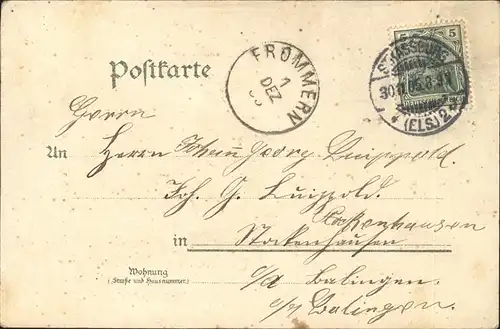 5
STRASSBURG
30.11.05.8-9N
* (ELS) 2
FROMMERN
1
DEZ
Postkarte
Herrn
An Herrn Johann Georg Luippold.
Joh. G. Luippold.
Stockenhausen
in Stockenhausen
Wohnung
(Straße und Hausnummer)
o/a Balingen.
Balingen.